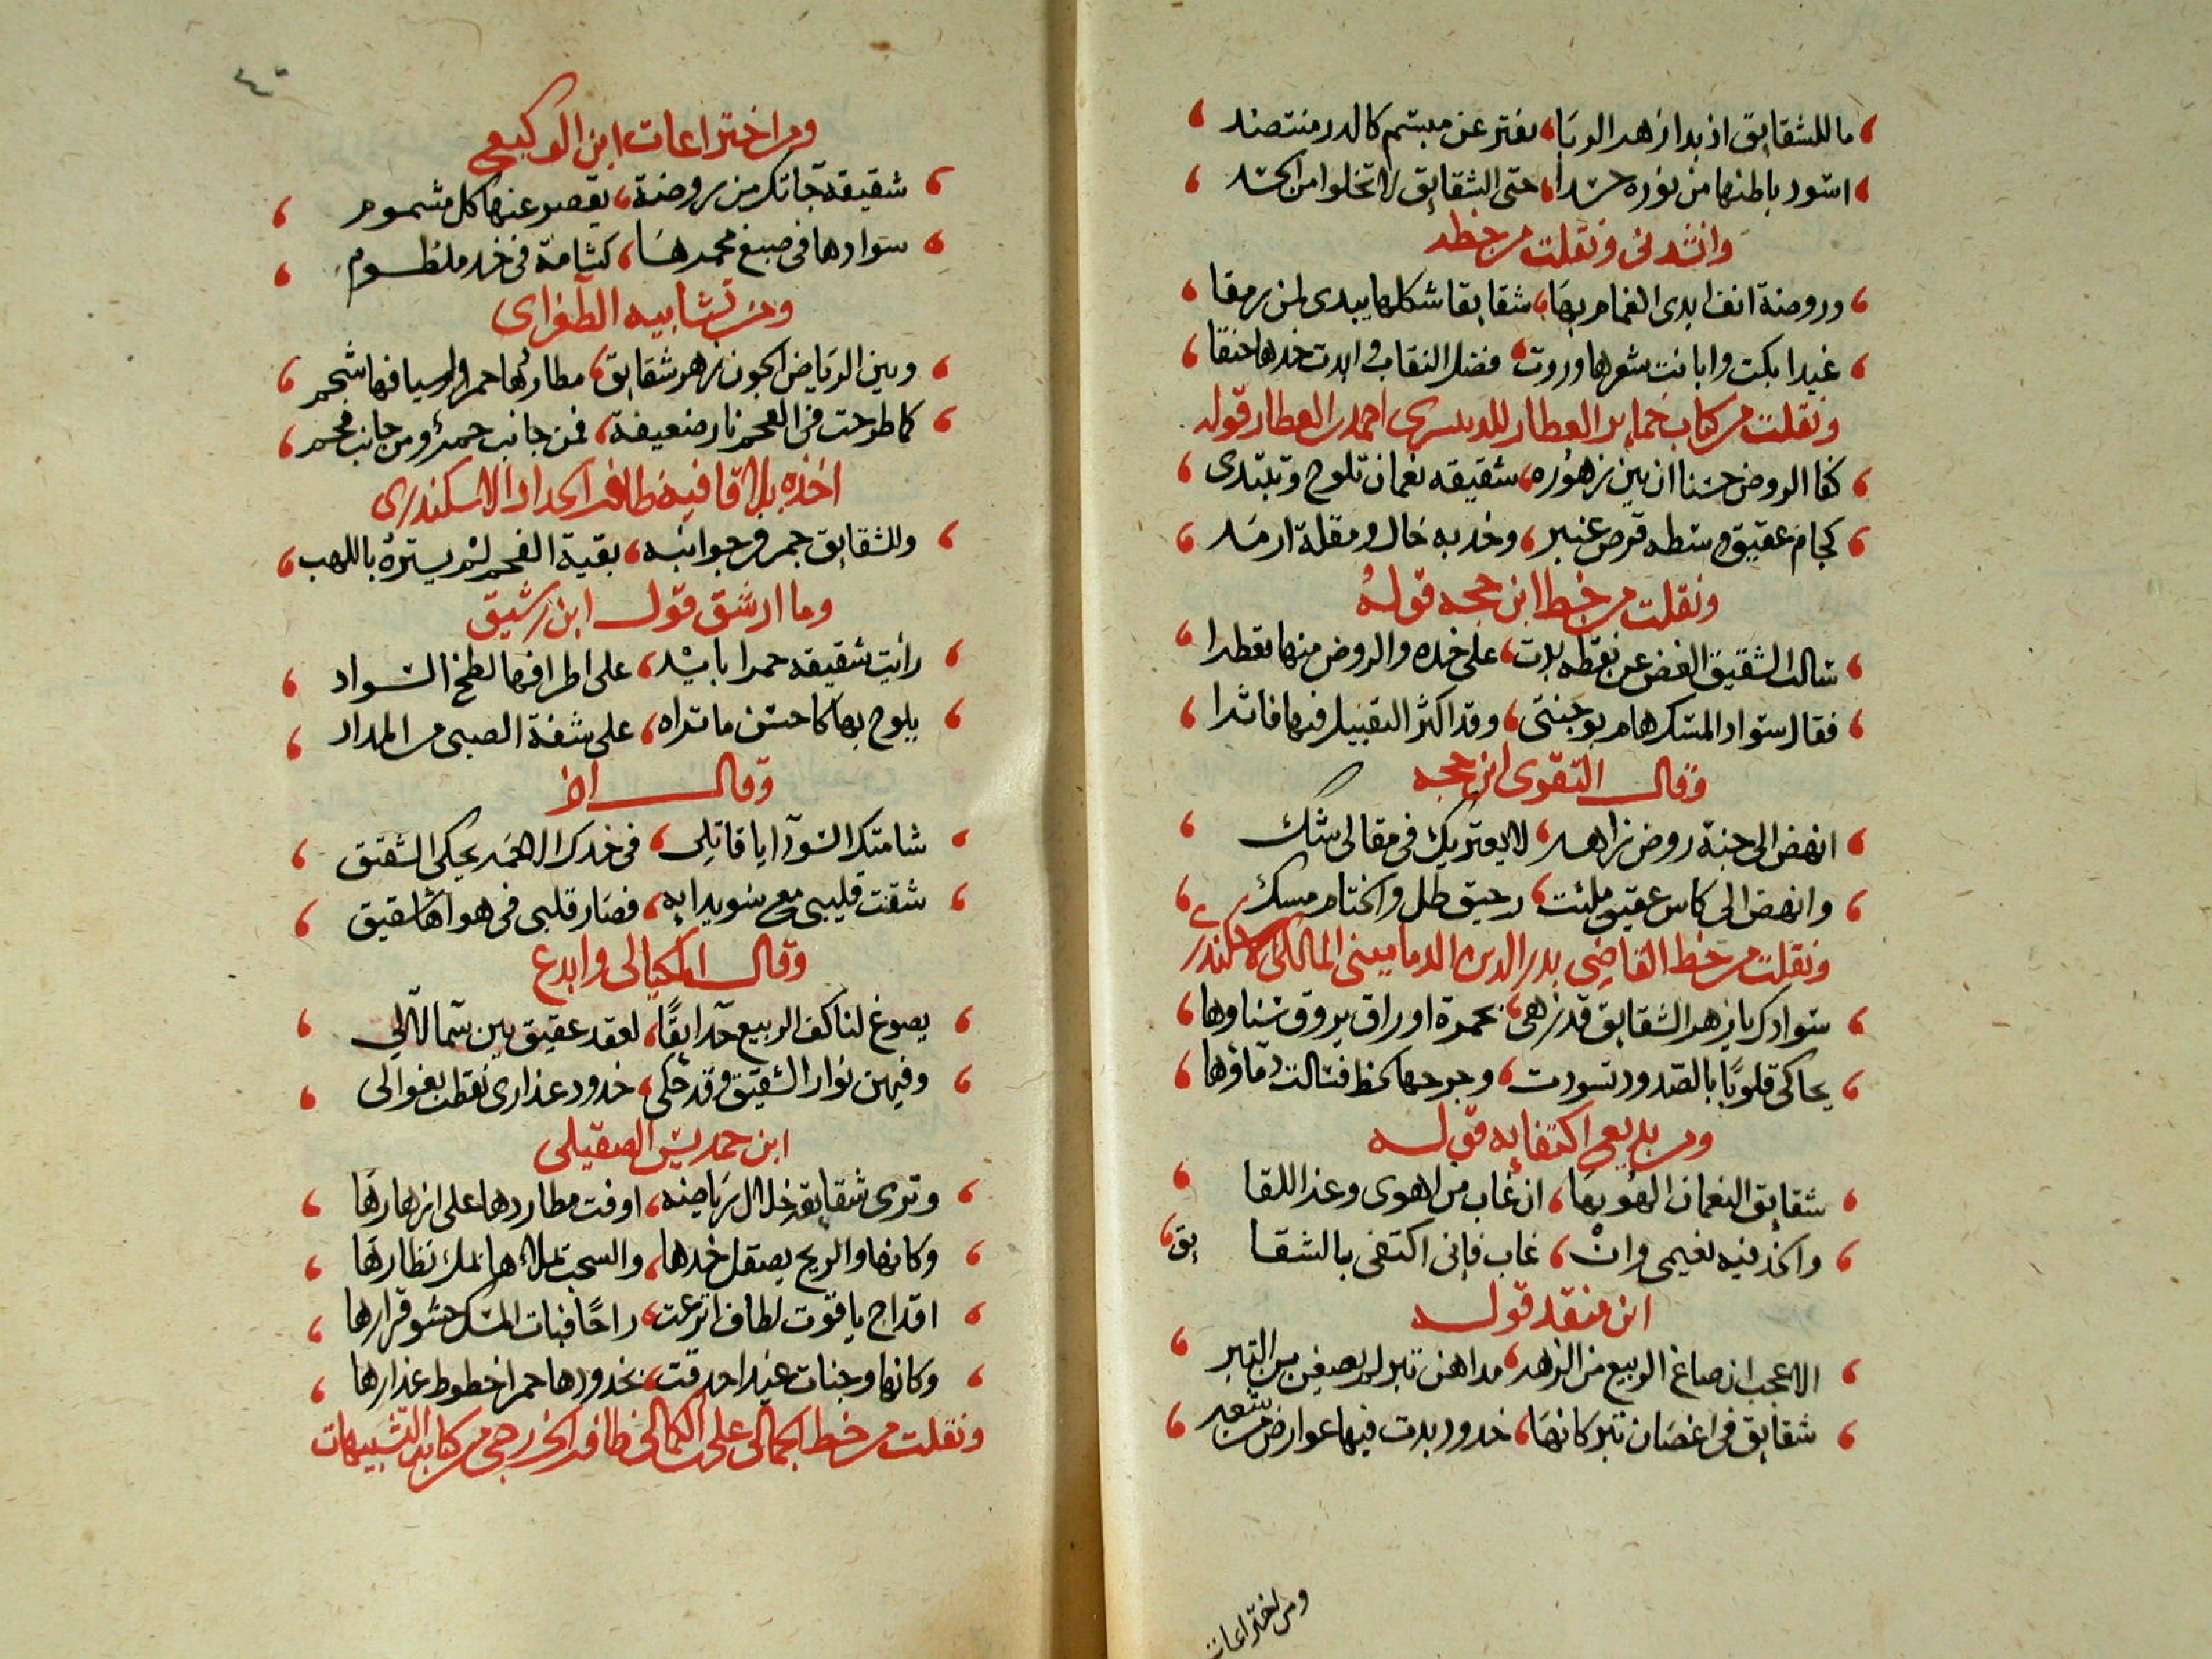 ما للشقايق اذ بدا زهر الربا، يفتر عن مبسم كالدر منتضد
اسود باطنها من نوره حسدا، حتى الشقايق لا تخلوا من الحسد
وانشدنى ونقلت من خطه
وروضة انف ابدى الغمام بها، شقايقا شكلها يبدى لمن رمقا
غيدا بكت وابانت شعرها وروت، فضل النقاب وابدت خدها حنقا
ونقلت من كتاب خماير العطار للدنيسرى احمد بن العطار قوله
كفا الروض حسنا ان بين زهوره، شقيقه نعمان تلوح وتبتدى
كجام عقيق وسطه قرص عنبر، وخد به خال ومقلة ارمد
ونقلت من خط ابن حجه قوله
سالت الشقيق الغض عن نقطه بدت، على خده والروض منها تعطرا
فقال سواد المسك هام بوجنتى، وقد اكثر التقبيل فيها فاثرا
وقال التقوى ابن حجه
انهض الى جنة روض زاهر، لا يعتريك فى مقالى شك
وانهض الى كاس عقيق ملئت، رحيق طل والختام مسك
ونقلت من خط القاضى بدر الدين الدمامينى المالكى الاسكندرى
سوادك يا زهر الشقايق قد زهى، بحمرة اوراق يروق سناوها
يحاكى قلوبًا بالصدود تسودت، وجرحها لحظ فسالت دماؤها
ومن بديع اكتفايه قوله
شقايق النعمان الهو بها، ان غاب من اهوى وعز اللقا
والخد فيه نعيمى وان، غاب فانى اكتفى بالشقا يق
ابن منقد قوله
الا عجب ان صاغ الربيع من الزهر، مداهن تبر لم يصغن من التبر
شقايق فى اغصان تبر كانها، خدود بدت فيها عوارض من شعر
ومن اختراعات
٤٠
ومن اختراعات ابن الوكيعى
شقيقه جاتك من روضة، يقصر عنها كل مشموم
سوادها فى صبغ محمرها، كشامة فى خد ملطوم
ومن تشابيه الطغراى
وبين الرياض الجون زهر شقايق، مطارفها حمر واسيافها سحم
كما طرحت فى الفحم نار ضعيفة، فمن جانب جمر ومن جانب فحم
اخذه بلا قافية ظافر الحداد الاسكندرى
وللشقايق جمر فى جوانبه، بقية الفحم لم يستره باللهب
وما ارشق قول ابن رشيق
رأيت شقيقه حمرا باسد، على اطرافها لطخ السواد
يلوح بها كاحسن ما تراه، على شفة الصبى من المداد
وقال اخر
شامتك السودا يا قاتلى، فى خدك الاحمر يحكى الشقيق
شقت قليبى مع سويدايه، فصار قلبى فى هواها شقيق
وقال الميكالى وابدع
يصوغ لنا كف الربيع حدايقًا، لعقد عقيق بين سمط لآلي
وفيهن نوار الشقيق وقد حكى، خدود عذارى نقطت بغوالى
ابن حمديس الصقيلى
وترى شقايقه خلال رياضه، اوفت مطاردها على ازهارها
وكانها والريح يصقل خدها، والسحب تملاها نمير قطارها
اقداح ياقوت لطاف اترعت، راحًا فبات المسك حشو قرارها
وكانها وجنات غيد احدقت، بخدودها حمرا خطوط عذارها
ونقلت من خط الجمالى على بن الكمالى ظافر الخزرجى من كتابه التشبيهات